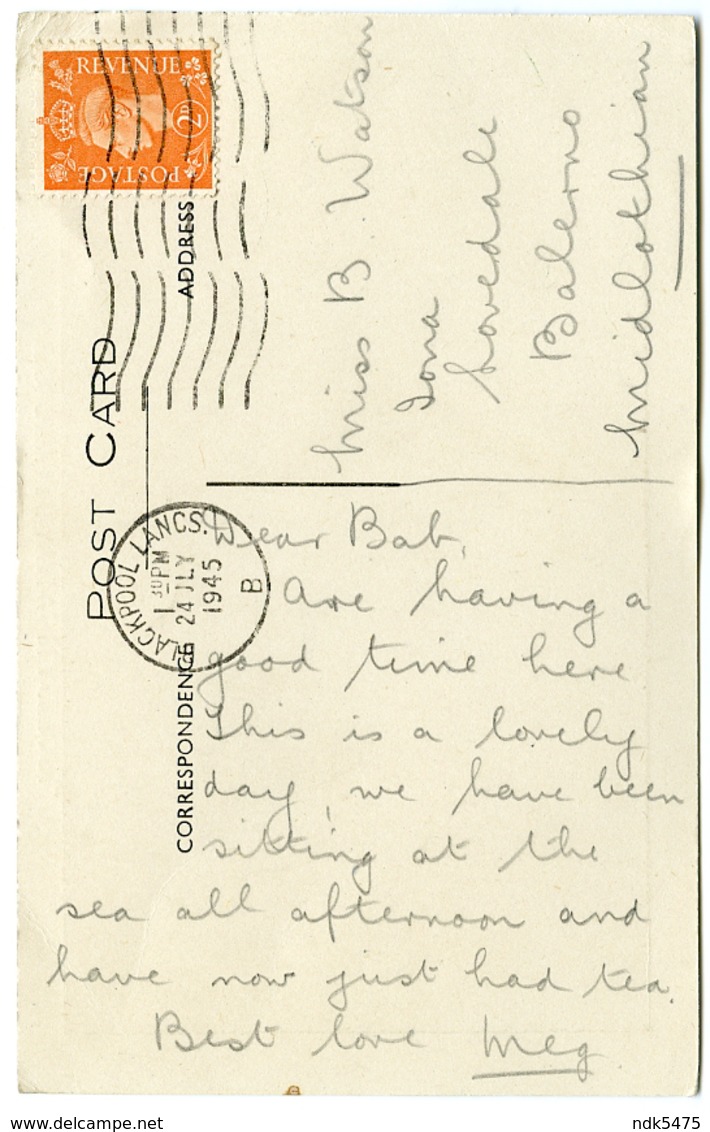 REVENUE
2D
POSTAGE
POST CARD
ADDRESS
CORRESPONDENCE
BLACKPOOL LANCS.
1 30 PM
24 JLY
1945
B
Miss B. Watson
Iona
Lovedale
Balerno
Midlothian
Dear Bab,
Are having a
good time here
This is a lovely
day, we have been
sitting at the
sea all afternoon and
have now just had tea.
Best love Meg
delcampe.net
ndk5475